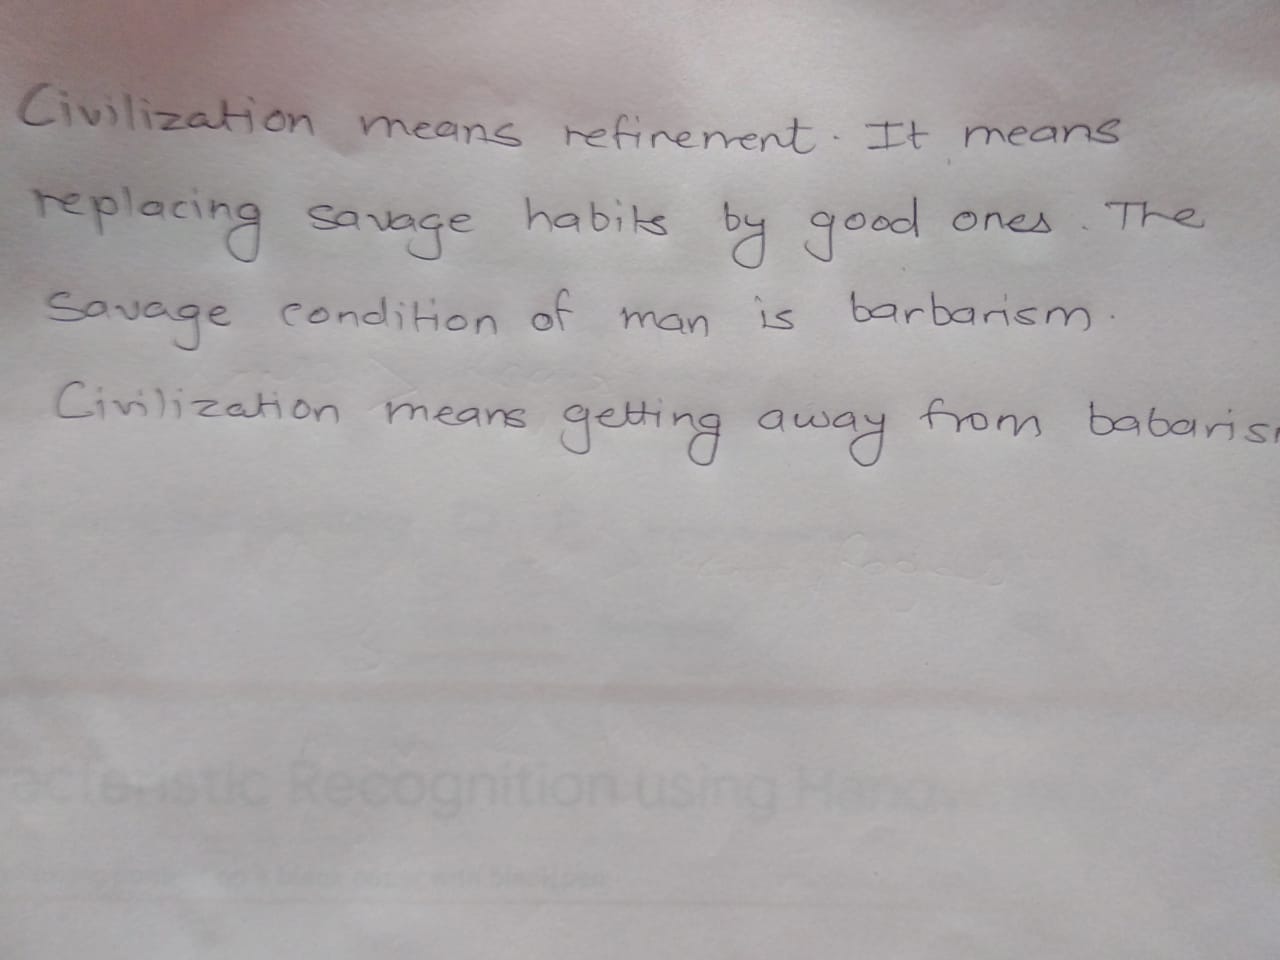 Civilization means refinement. It means
replacing savage habits by good ones. The
Savage condition of man is barbarism.
Civilization means getting away from babarism
Recognition using Hand